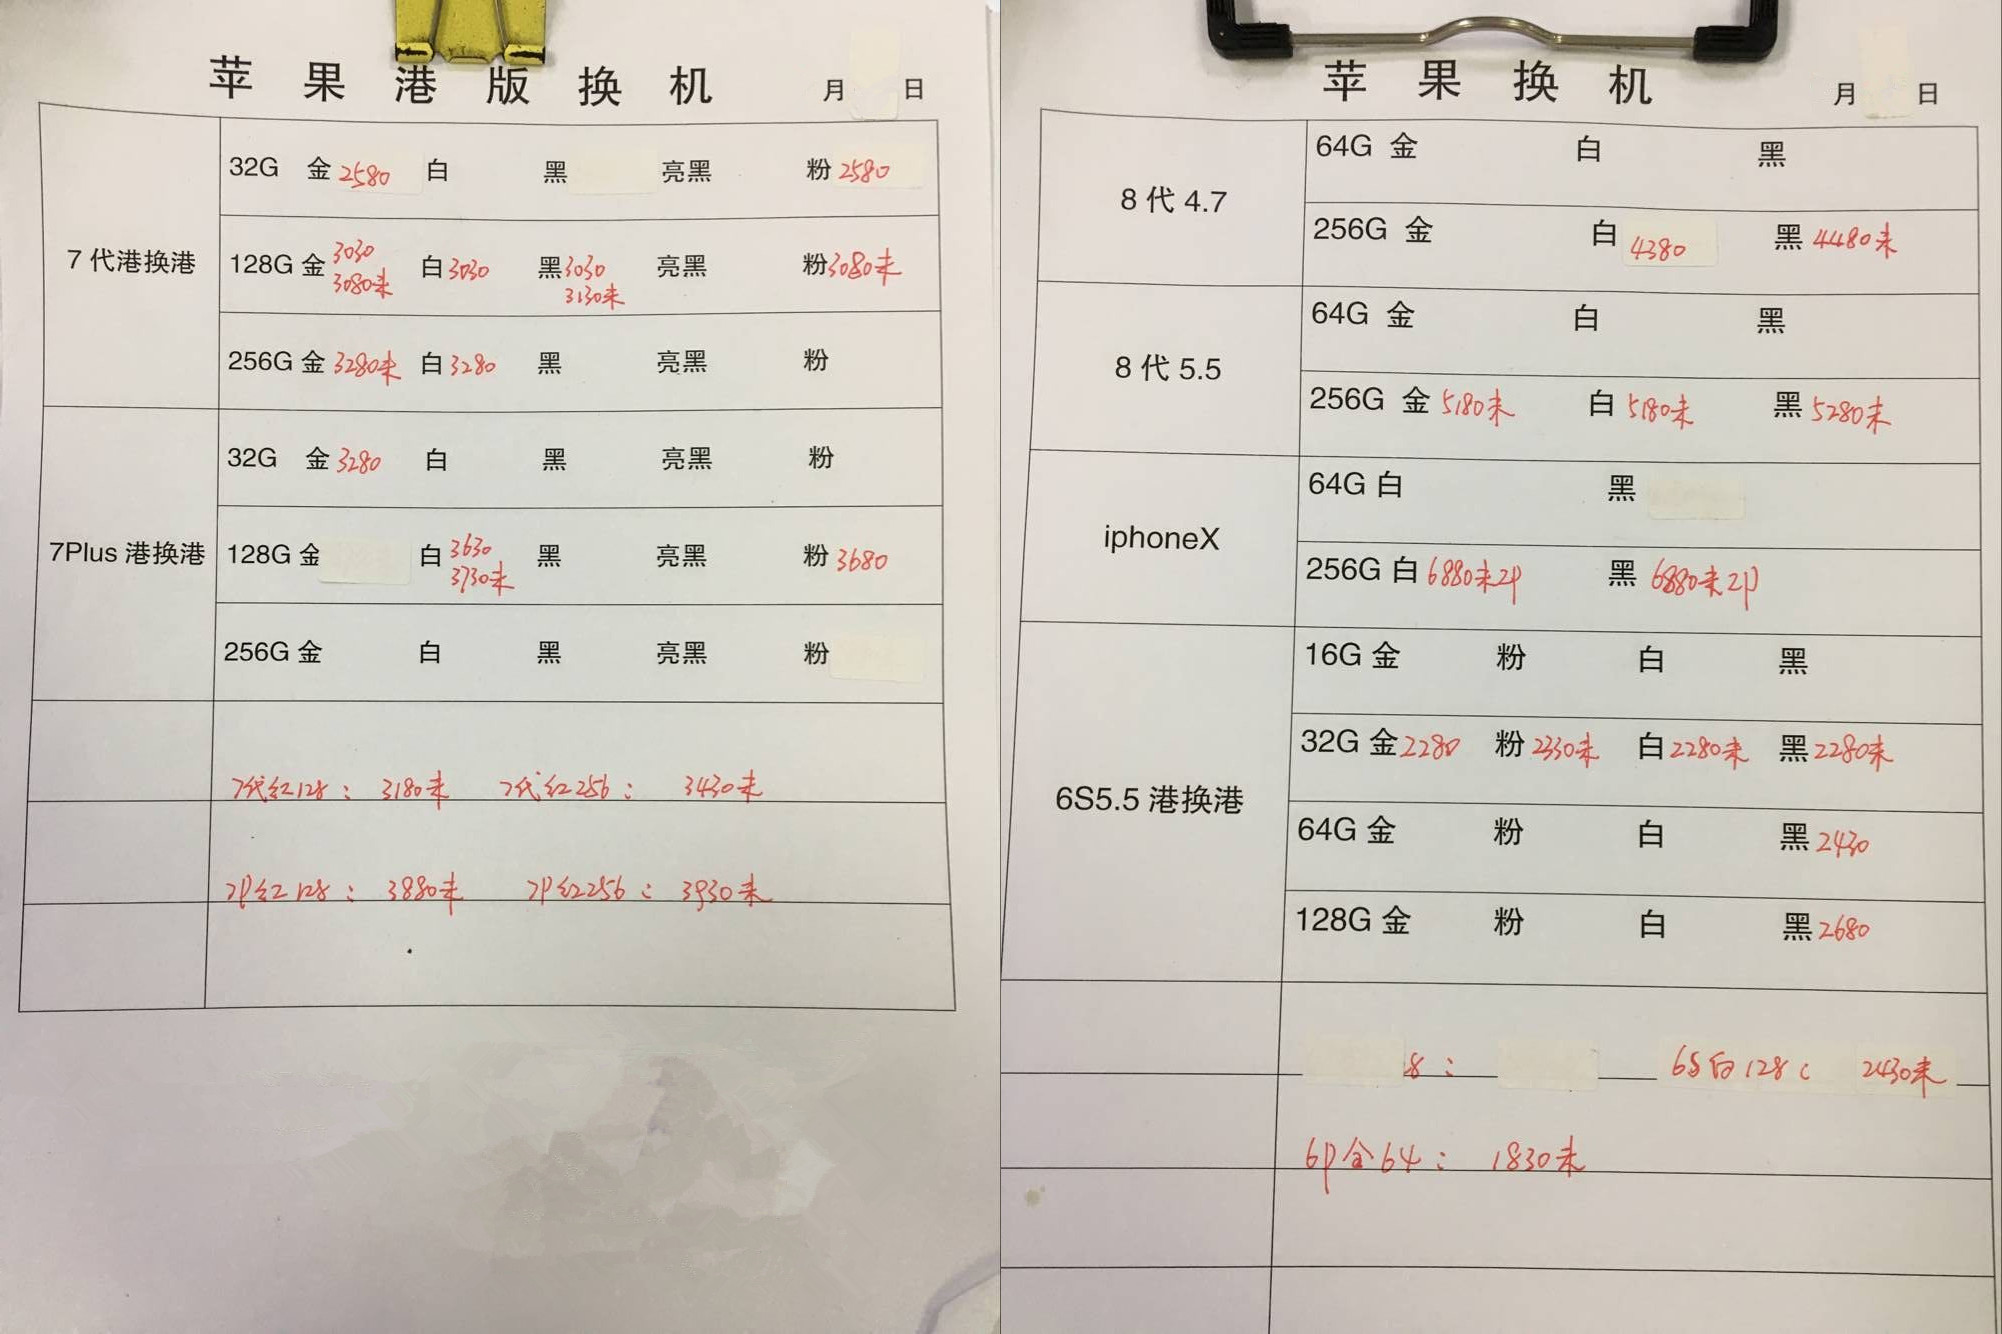 苹果港版换机 月 日
7代港换港
32G 金 2580 白 黑 亮黑 粉 2580
128G 金 3030 3080未 白 3030 黑 3030 3130未 亮黑 粉 3080未
256G 金 3280未 白 3280 黑 亮黑 粉
7Plus 港换港
32G 金 3280 白 黑 亮黑 粉
128G 金 白 3630 3730未 黑 亮黑 粉 3680
256G 金 白 黑 亮黑 粉
7代红128： 3180未 7代红256： 3430未
7P红128： 3880未 7P红256： 3930未
苹果换机 月 日
8代 4.7
64G 金 白 黑
256G 金 白 4380 黑 4480未
8代 5.5
64G 金 白 黑
256G 金 5180未 白 5180未 黑 5280未
iphoneX
64G 白 黑
256G 白 6880未2P 黑 6880未2P
6S5.5 港换港
16G 金 粉 白 黑
32G 金 2280 粉 2330未 白 2280未 黑 2280未
64G 金 粉 白 黑 2430
128G 金 粉 白 黑 2680
8： 6S白128： 2430未
6P金64： 1830未